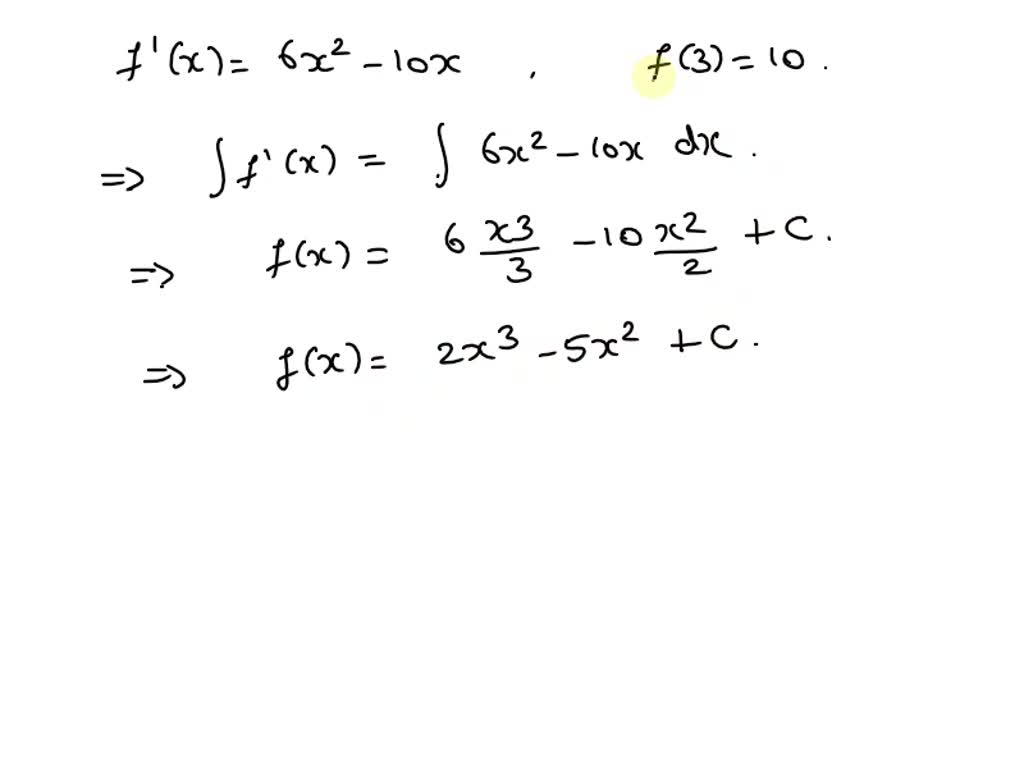 f'(x) = 6x² - 10x , f(3) = 10 .
=> ∫ f'(x) = ∫ 6x² - 10x dx .
=> f(x) = 6 x3/3 - 10 x2/2 + C .
=> f(x) = 2x³ - 5x² + C .